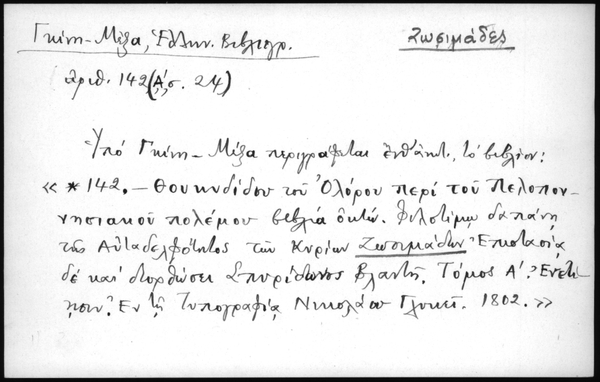 Γκίνη–Μέξα, Ἑλλην. Βιβλιογρ.
Ζωσιμάδες
ἀριθ. 142 (Α΄, σ. 24)
Ὑπό Γκίνη–Μέξα περιγράφεται ἐνθάδε, τό βιβλίον:
« * 142. – Θουκυδίδου τοῦ Ὀλόρου περί τοῦ Πελοπον-
νησιακοῦ πολέμου βιβλία ὀκτώ. Φιλοτίμῳ δαπάνῃ
τῆς Αὐταδελφότητος τῶν Κυρίων Ζωσιμάδων Ἐπιστασίᾳ
δέ καί διορθώσει Σπυρίδωνος Βλαντῆ. Τόμος Α΄. Ἐνετί-
ησιν. Ἐν τῇ Τυπογραφίᾳ Νικολάου Γλυκεῖ. 1802. »